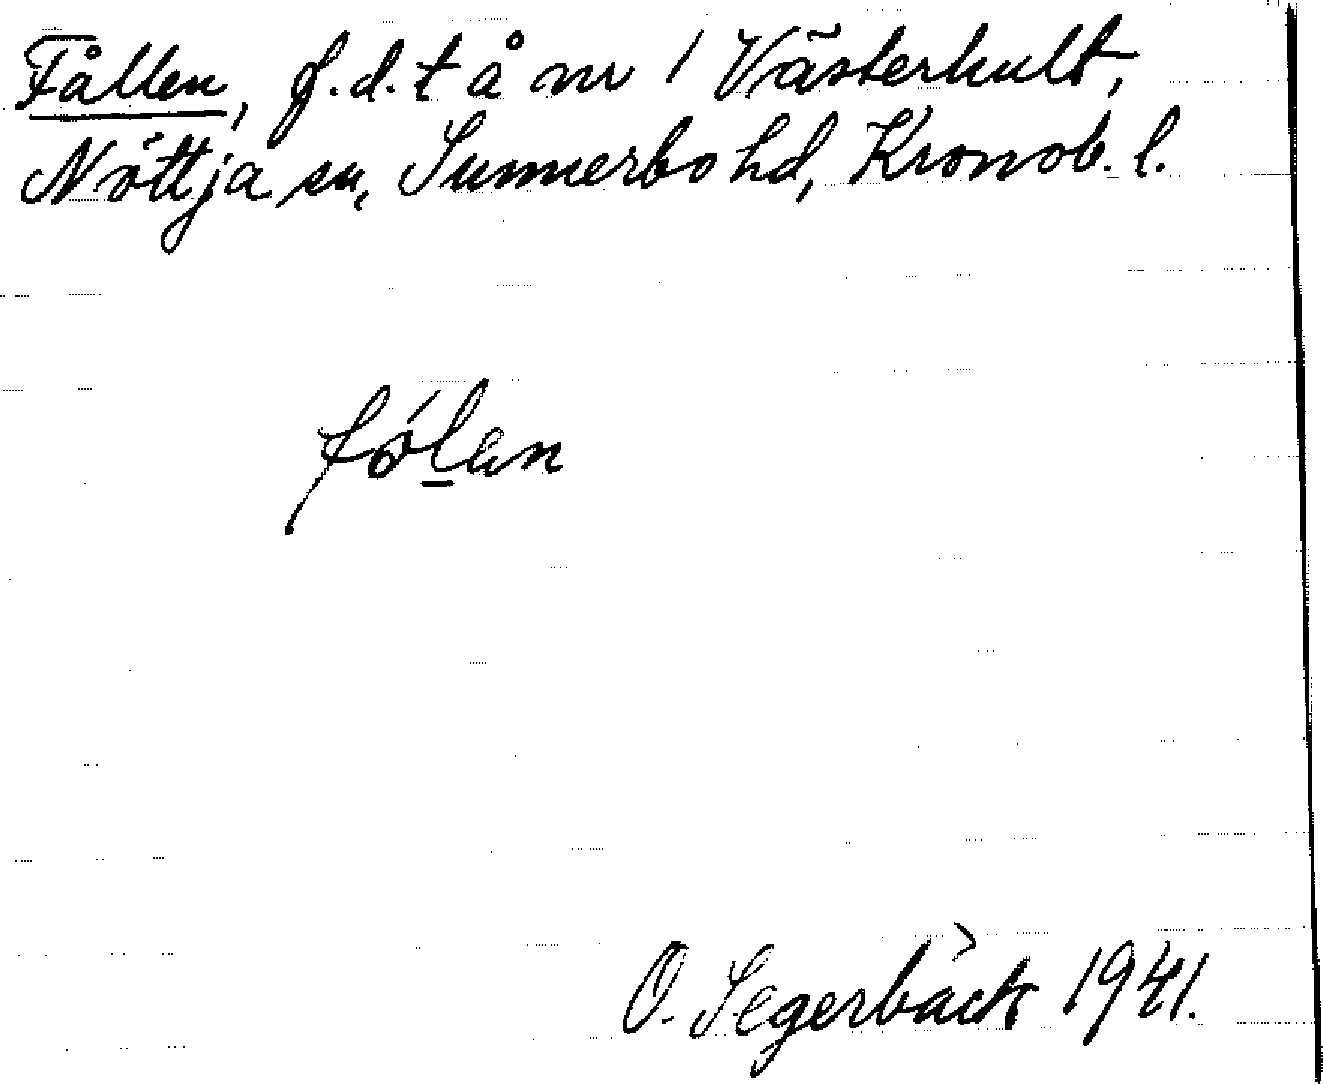 Fållen, f.d. t å nr 1 Västerhult,
Nöttja sn, Sunnerbo hd, Kronob. l.
fólan
O. Segerbäck 1941.